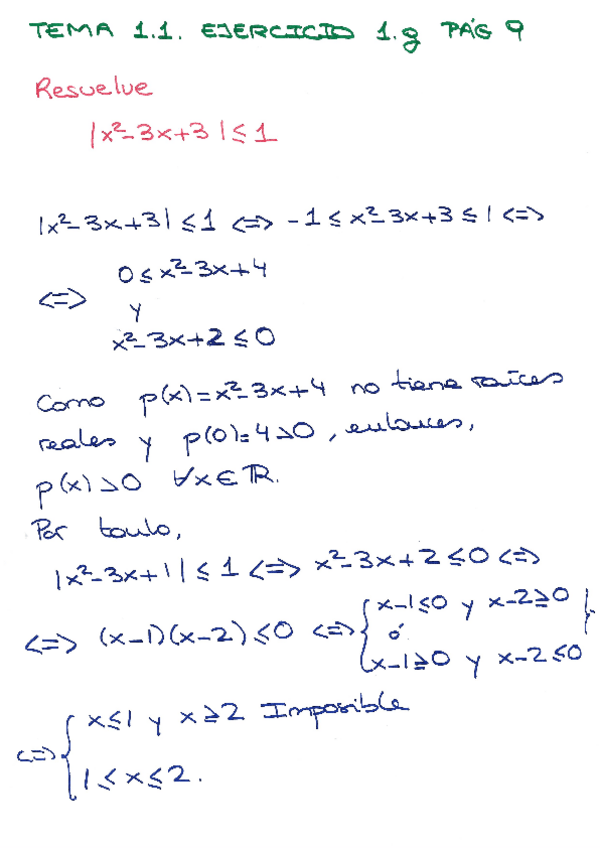 TEMA 1.1. EJERCICIO 1.g PÁG 9
Resuelve
|x²-3x+3|≤1
|x²-3x+3|≤1 <=> -1≤x²-3x+3≤1 <=>
0≤x²-3x+4
<=> y
x²-3x+2≤0
Como p(x)=x²-3x+4 no tiene raíces
reales y p(0)=4>0, entonces,
p(x)>0 ∀x∈ℝ.
Por tanto,
|x²-3x+1|≤1 <=> x²-3x+2≤0 <=>
<=> (x-1)(x-2)≤0 <=> { x-1≤0 y x-2≥0 }
ó
x-1≥0 y x-2≤0
<=> { x≤1 y x≥2 Imposible
1≤x≤2.